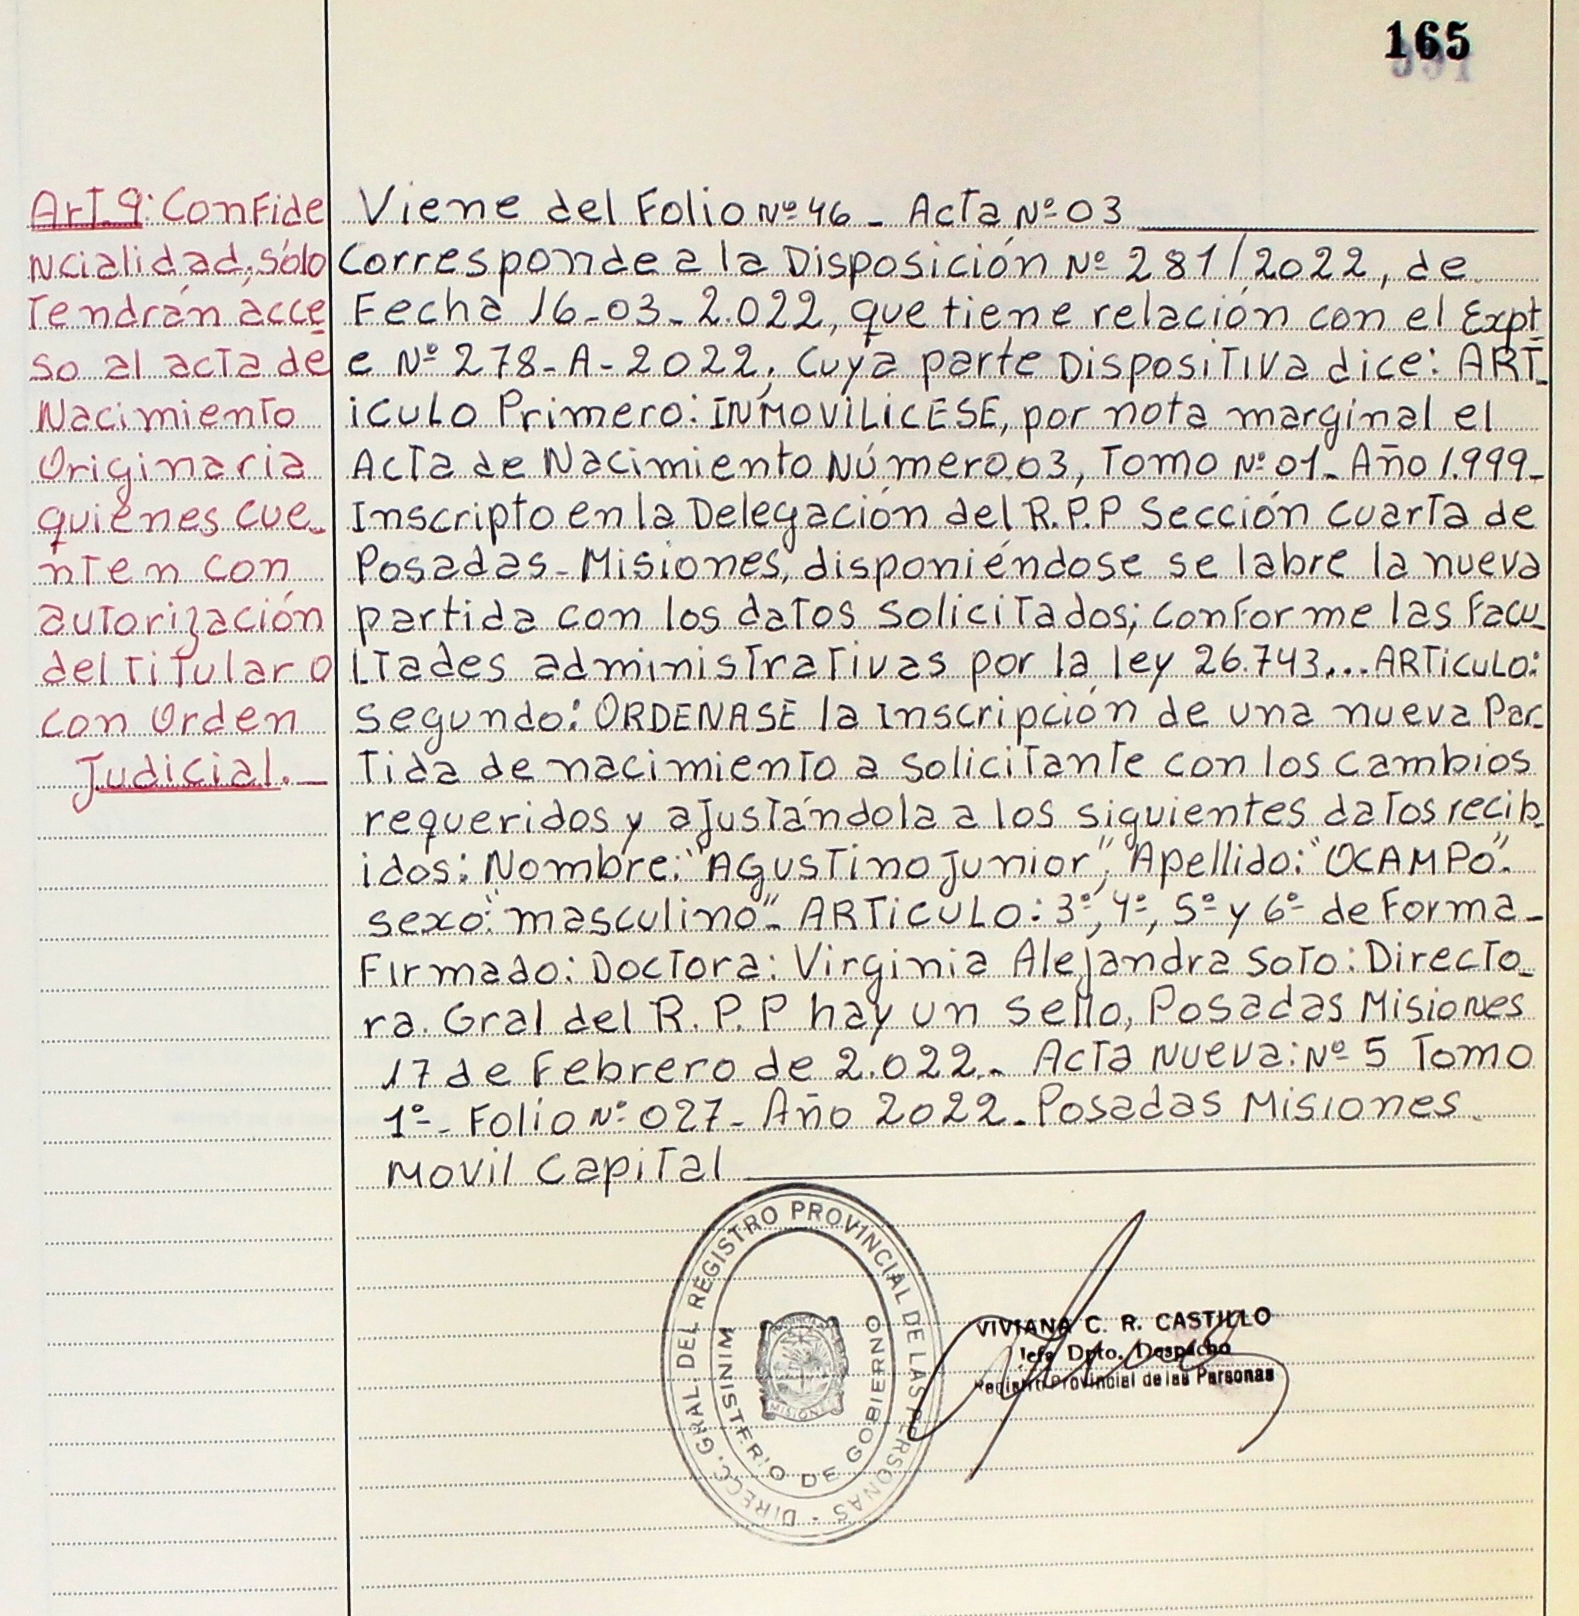 165
Art. 9: Confide
ncialidad, sólo
Tendrán acce
so al acta de
Nacimiento
Originaria
quienes cue
nten con
autorización
del Titular o
con Orden
Judicial.
Viene del Folio Nº 46 - Acta Nº 03
Corresponde a la Disposición Nº 281/2022, de
Fecha 16-03-2.022, que tiene relación con el Expt
e Nº 278-A-2022, Cuya parte Dispositiva dice: ART
ICULO Primero: INMOVILICESE, por nota marginal el
Acta de Nacimiento Número 03, Tomo Nº 01 - Año 1.999-
Inscripto en la Delegación del R.P.P Sección Cuarta de
Posadas - Misiones, disponiéndose se labre la nueva
partida con los datos solicitados; conforme las facu
ltades administrativas por la ley 26.743... ARTICULO:
segundo: ORDENASE la Inscripción de una nueva Par
tida de nacimiento a solicitante con los cambios
requeridos y ajustándola a los siguientes datos recib
idos: Nombre: "Agustino Junior", Apellido: "OCAMPO".
sexo: "masculino". ARTICULO: 3º, 4º, 5º y 6º de Forma -
Firmado: Doctora: Virginia Alejandra Soto: Directo
ra. Gral del R.P.P hay un sello, Posadas Misiones
17 de Febrero de 2.022. - Acta Nueva: Nº 5 Tomo
1º - Folio Nº 027 - Año 2022. Posadas Misiones.
Movil Capital
DIRECC. GRAL. DEL REGISTRO PROVINCIAL DE LAS PERSONAS -
MINISTERIO DE GOBIERNO
MISIONES
VIVIANA C. R. CASTILLO
Jefe Dpto. Despacho
Registro Provincial de las Personas